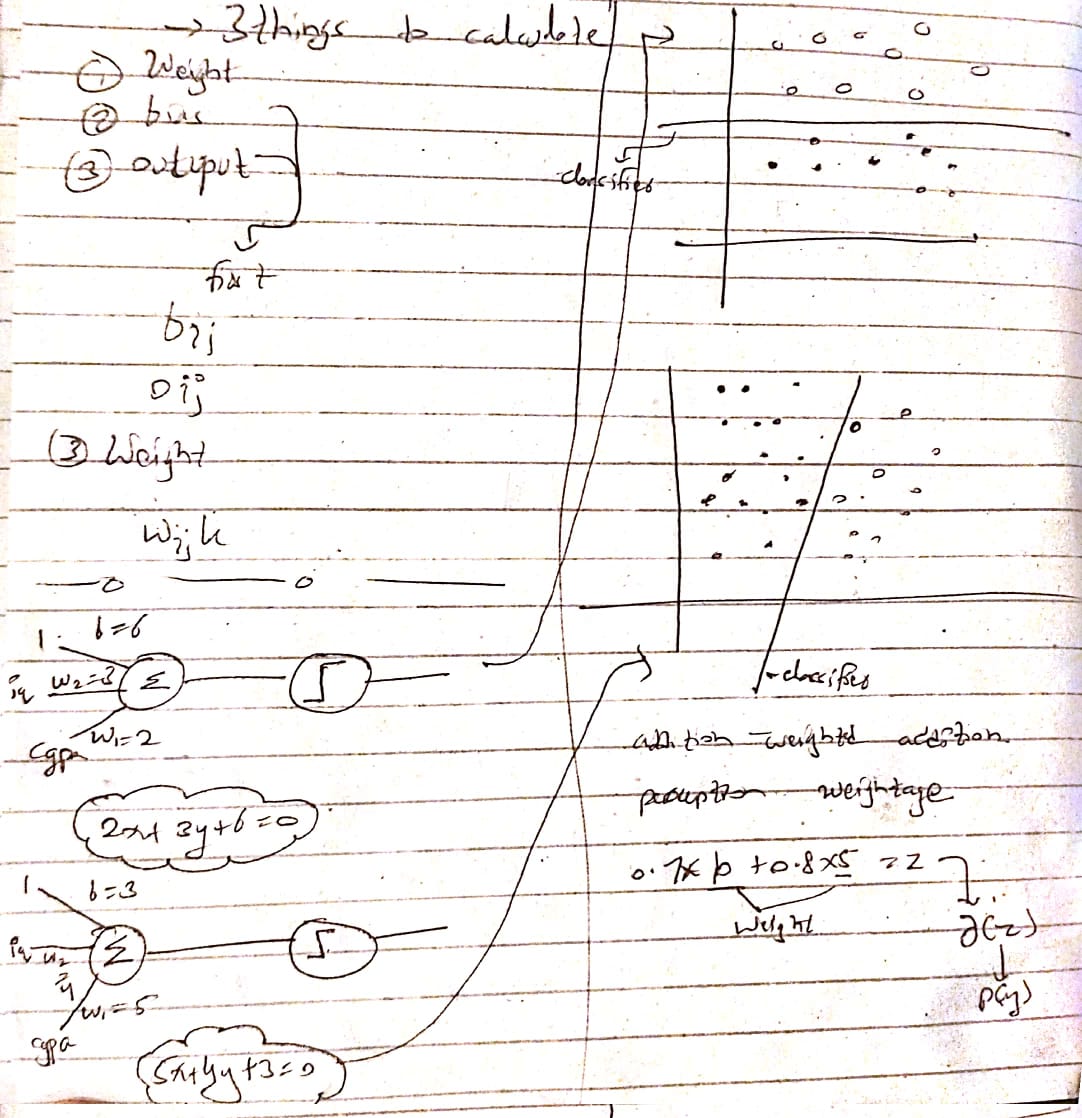 → 3 things to calculate
① Weight
② bias
③ output
bij
Oij
③ Weight
Wijk
classifier
1 b=6
iq w2=3 Σ
cgpa w1=2
2x+3y+6=0
1 b=3
iq w2 Σ
=4
cgpa w1=5
5x+4y+3=0
classifier
addition weighted addition
perceptron weightage
+0.8×5 = z
weight
∂(z)
p(y)